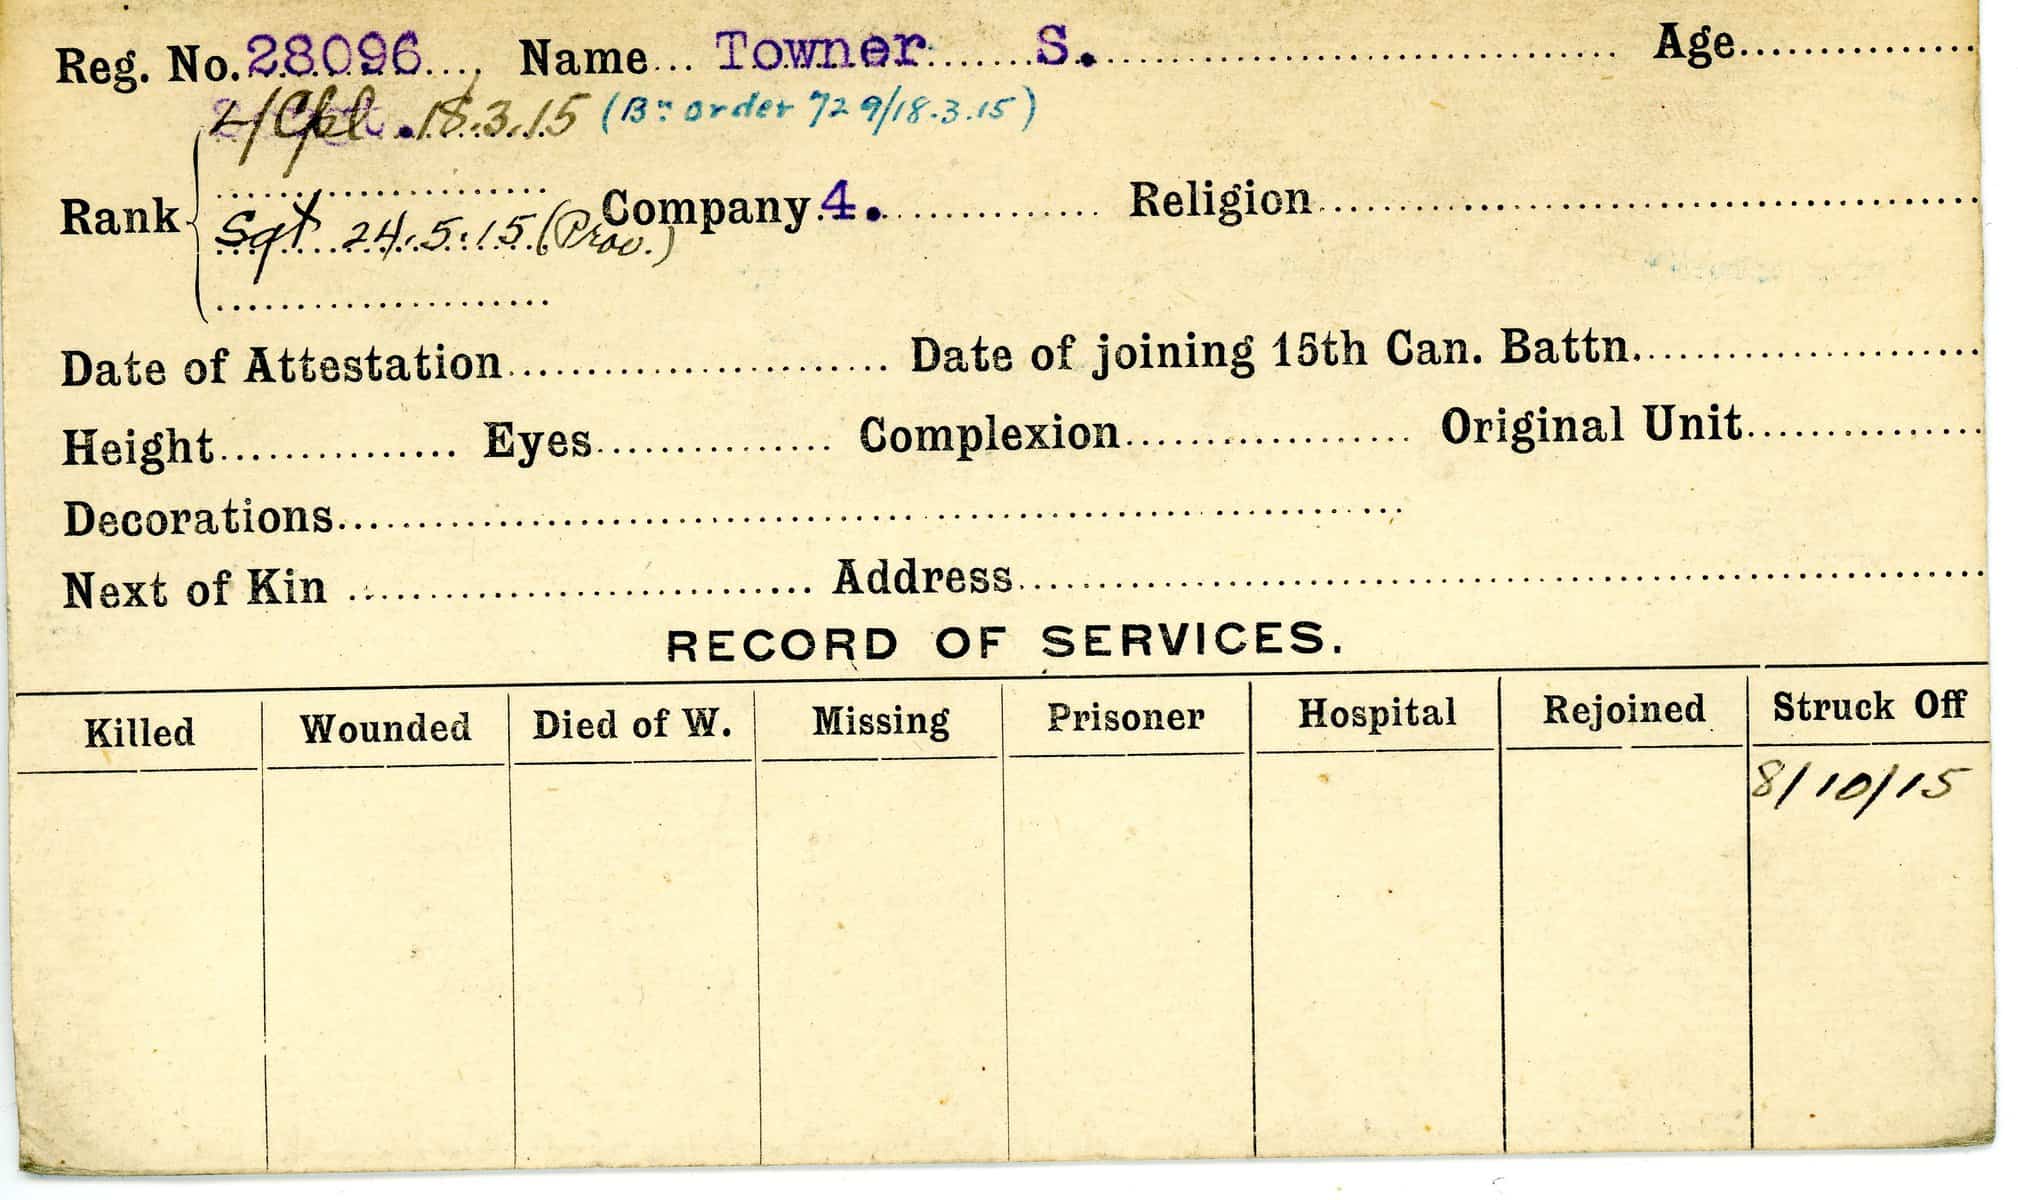 Reg. No. 28096 Name Towner S. Age
L/Cpl . 18.3.15 (Bn order 729/18.3.15)
Rank Company 4. Religion
Sgt 24.5.15 (Prov.)
Date of Attestation Date of joining 15th Can. Battn.
Height Eyes Complexion Original Unit
Decorations
Next of Kin Address
RECORD OF SERVICES.
Killed Wounded Died of W. Missing Prisoner Hospital Rejoined Struck Off
8/10/15